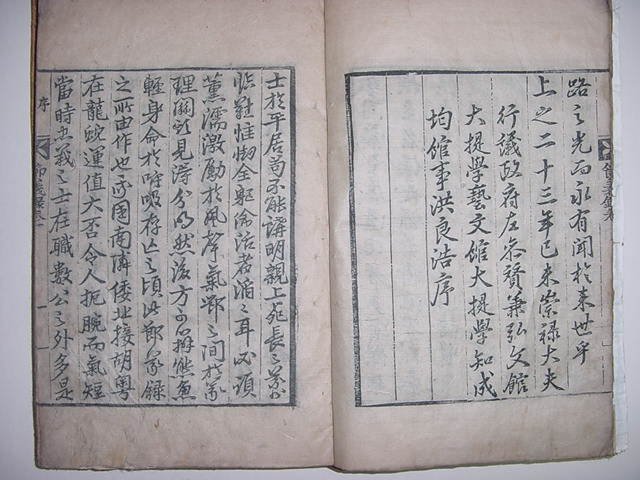 路之光而永有聞於來世乎
上之二十三年己未崇祿大夫
行議政府左參贊兼弘文館
大提學藝文館大提學知成
均館事洪良浩序
節義錄卷
士於平居苟不能講明親上死長之義
臨難惟全軀偷活者滔滔耳必須
薰濡激勵於風聲氣節之間於義
理關頭見得分明然後方可辦熊魚
輕身命於呼吸存亡之頃此節義錄
之所由作也我國南隣倭北接胡粤
在龍蛇運值大否令人扼腕而氣短
當時立義之士在職數公之外多是
序
節義錄卷一
一